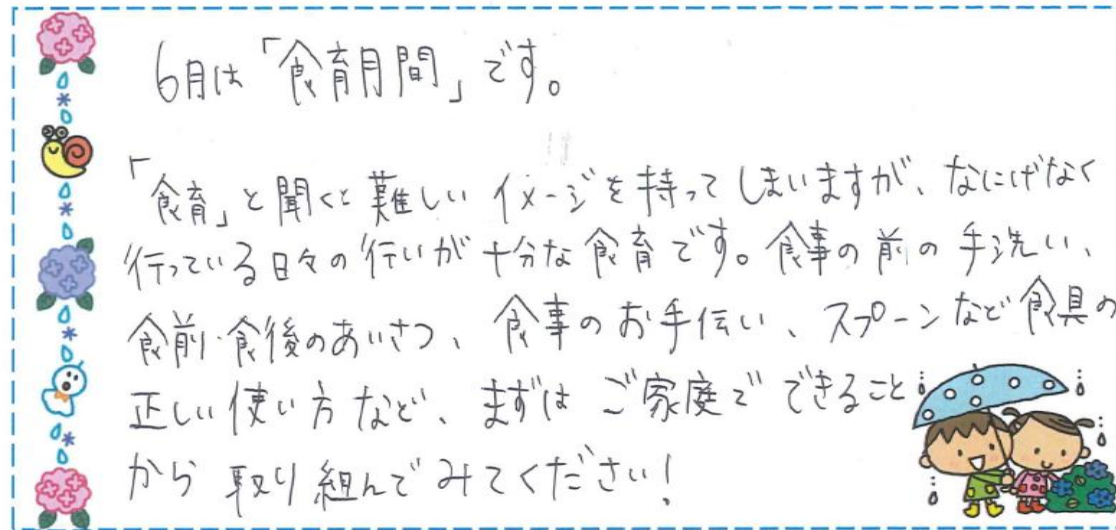 6月は「食育月間」です。
「食育」と聞くと難しいイメージを持ってしまいますが、なにげなく
行っている日々の行いが十分な食育です。食事の前の手洗い、
食前・食後のあいさつ、食事のお手伝い、スプーンなど食具の
正しい使い方など、まずはご家庭でできること
から取り組んでみてください!